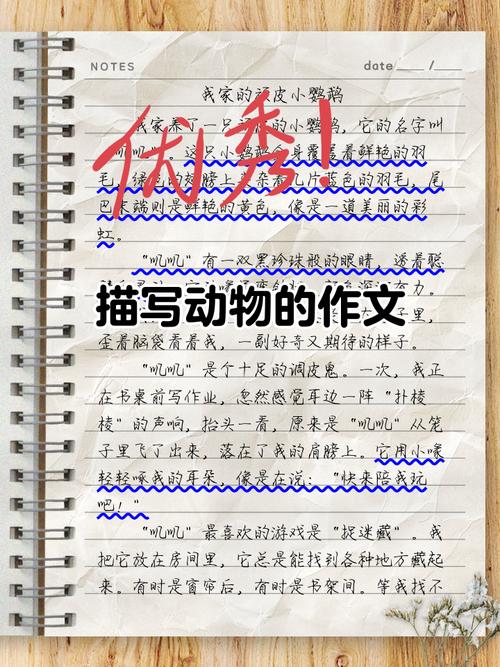 NOTES
date ____ / ____
我家的顽皮小鹦鹉
我家养了一只的小鹦鹉，它的名字叫
优秀！
"叽叽"。这只小鹦鹉全身覆盖着鲜艳的羽
毛，绿色的翅膀上夹杂着几片蓝色的羽毛，尾
巴末端则是鲜艳的黄色，像是一道美丽的彩
虹。
"叽叽"有一双黑珍珠般的眼睛，透着聪
描写动物的作文
力。
子里，
歪着脑袋看着我，一副好奇又期待的样子。
"叽叽"是个十足的调皮鬼。一次，我正
在书桌前写作业，忽然感觉耳边一阵"扑棱
棱"的声响，抬头一看，原来是"叽叽"从笼
子里飞了出来，落在了我的肩膀上。它用小喙
轻轻啄我的耳朵，像是在说："快来陪我玩
吧！"
"叽叽"最喜欢的游戏是"捉迷藏"。我
把它放在房间里，它总是能找到各种地方藏起
来。有时是窗帘后，有时是书架间。等我找不